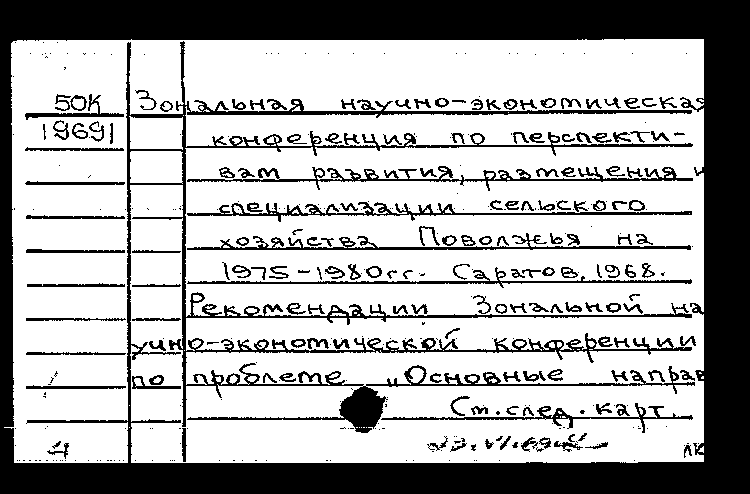 50К Зональная научно-экономическая
19691 конференция по перспекти-
вам развития, размещения и
специализации сельского
хозяйства Поволжья на
1975-1980гг. Саратов, 1968.
Рекомендации Зональной на
учно-экономической конференции
по проблеме „Основные направ
См. след. карт.